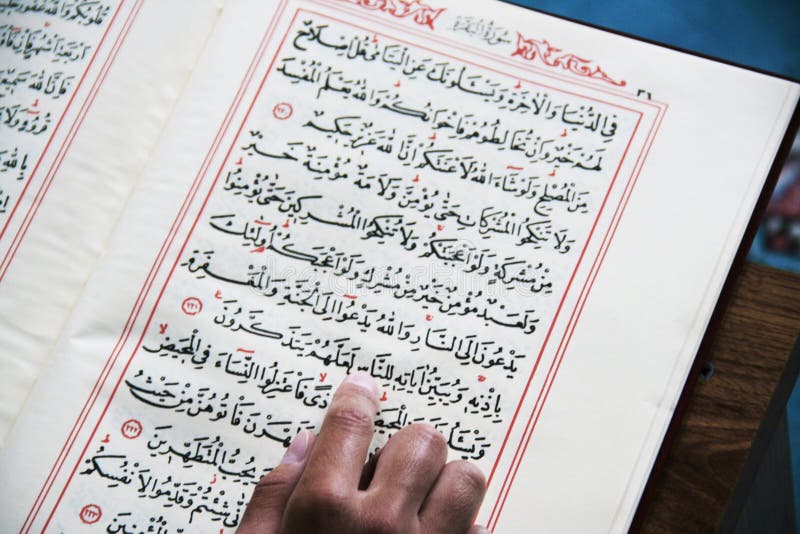 سُورَةُ الْبَقَرَةِ
فِي الدُّنْيَا وَالْاٰخِرَةِ وَيَسْـَٔلُونَكَ عَنِ الْيَتَامٰى قُلْ اِصْلَاحٌ
لَهُمْ خَيْرٌ وَاِنْ تُخَالِطُوهُمْ فَاِخْوَانُكُمْ وَاللّٰهُ يَعْلَمُ الْمُفْسِدَ
مِنَ الْمُصْلِحِ وَلَوْ شَٓاءَ اللّٰهُ لَاَعْنَتَكُمْ اِنَّ اللّٰهَ عَزِيزٌ حَكِيمٌ ٢٢٠
وَلَا تَنْكِحُوا الْمُشْرِكَاتِ حَتّٰى يُؤْمِنَّ وَلَاَمَةٌ مُؤْمِنَةٌ خَيْرٌ
مِنْ مُشْرِكَةٍ وَلَوْ اَعْجَبَتْكُمْ وَلَا تُنْكِحُوا الْمُشْرِكِينَ حَتّٰى يُؤْمِنُوا
وَلَعَبْدٌ مُؤْمِنٌ خَيْرٌ مِنْ مُشْرِكٍ وَلَوْ اَعْجَبَكُمْ اُو۬لٰٓئِكَ
يَدْعُونَ اِلَى النَّارِ وَاللّٰهُ يَدْعُٓوا اِلَى الْجَنَّةِ وَالْمَغْفِرَةِ
بِاِذْنِهِ وَيُبَيِّنُ اٰيَاتِهِ لِلنَّاسِ لَعَلَّهُمْ يَتَذَكَّرُونَ ٢٢١
الْمَحِيضِ فَاعْتَزِلُوا النِّسَٓاءَ فِي الْمَحِيضِ
فَأْتُوهُنَّ مِنْ حَيْثُ
يُحِبُّ الْمُتَطَهِّرِينَ ٢٢٢
شِئْتُمْ وَقَدِّمُوا لِاَنْفُسِكُمْ
الْمُؤْمِنِينَ ٢٢٣